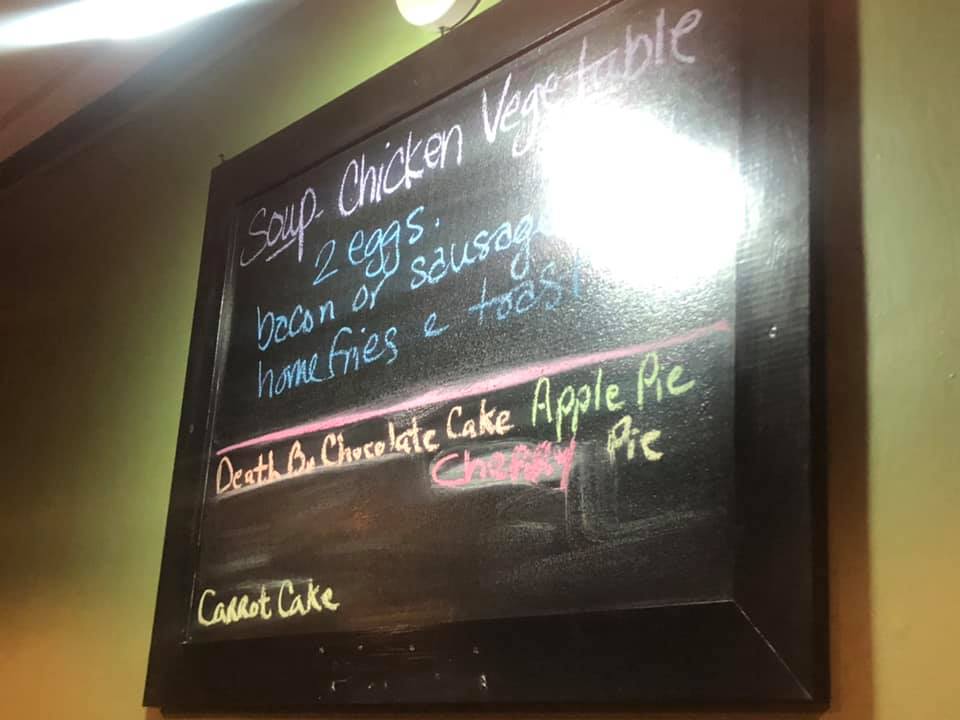 Soup- Chicken Vegetable
2 eggs.
bacon or sausage
homefries & toast
Death By Chocolate Cake Apple Pie
Cherry Pie
Carrot Cake